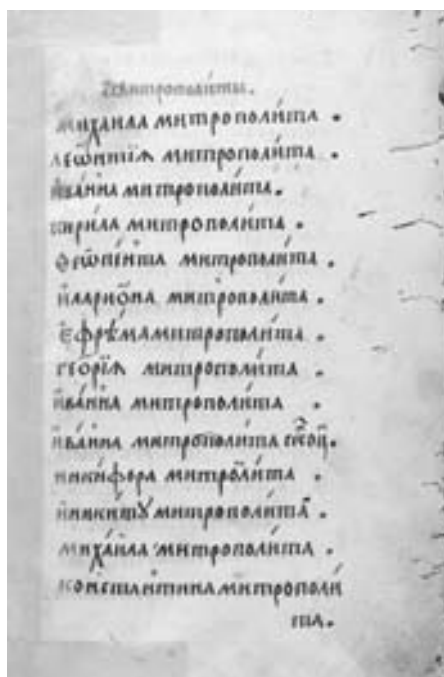 митрополи́ты.
михаила митрополи́та.
леѡ́нтїѧ митрополи́та.
їѡа́нна митрополи́та.
кирила митрополи́та.
ѳеѡпе́нта митрополи́та.
иларио́на митрополи́та.
ефре́ма митрополи́та.
гео́ргїѧ митрополи́та.
ива́нна митрополи́та.
ива́нна митрополи́та
ники́фора митропо́лита.
никитꙋ митрополи́та.
миха́ила митрополи́та.
ко́нстѧнтина митрополи́
та.